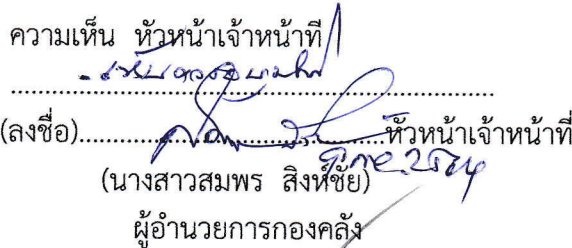 ความเห็น หัวหน้าเจ้าหน้าที่
- เห็นควรอนุมัติ
(ลงชื่อ)....................................หัวหน้าเจ้าหน้าที่
(นางสาวสมพร สิงห์ชัย)
ผู้อำนวยการกองคลัง